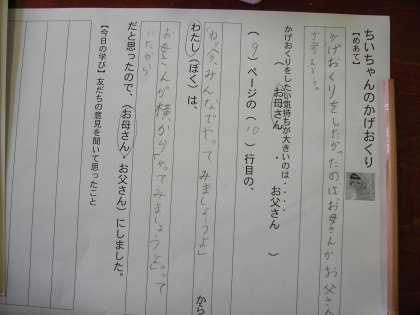 ちいちゃんのかげおくり
【めあて】
かげおくりをしたかったのは、お母さんかお父さん
かげおくりをしたい気持ちが大きいのは・・・・
( お母さん ・ お父さん )
( 9 )ページの( 10 )行目の、
「ねえ、みんなでやってみましょうよ」から
わたし(ぼく)は、
お母さんが横から「やってみましょうよ」って
いたから
だと思ったので、(お母さん・お父さん)にしました。
【今日の学び】友だちの意見を聞いて思ったこと